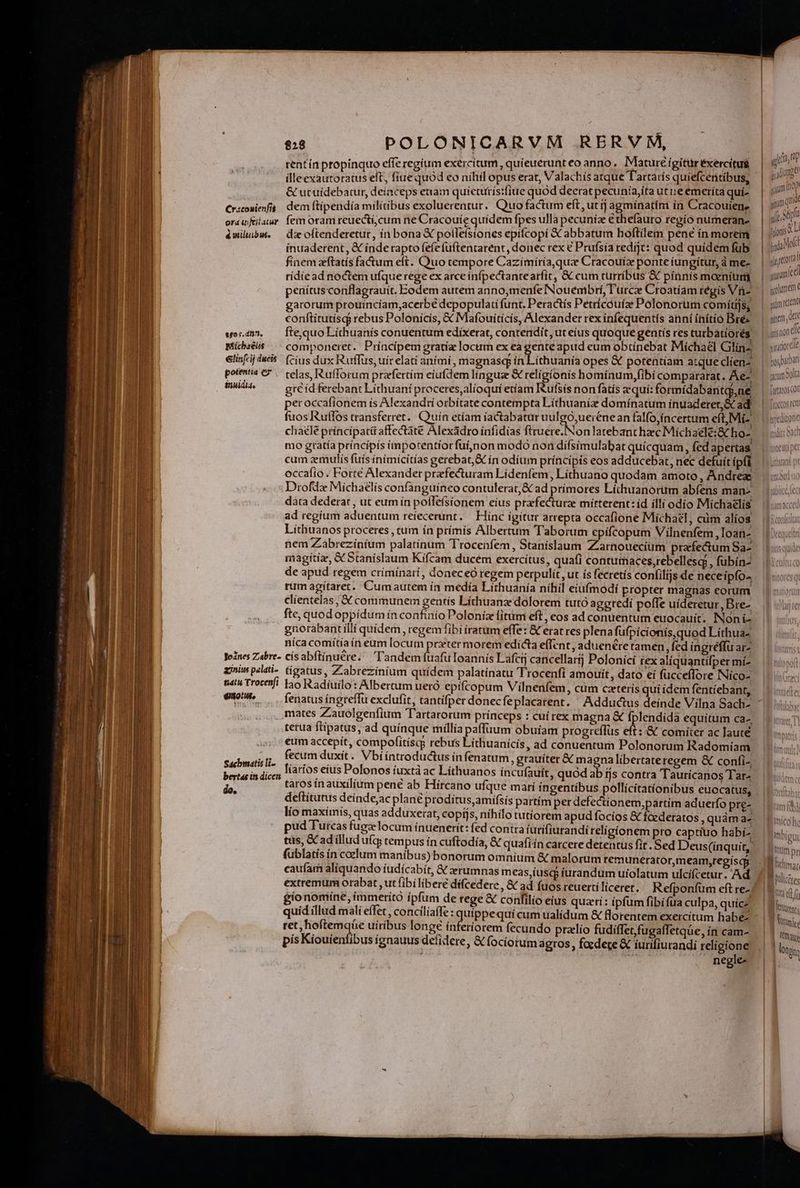 828 POLONICARVM RERVM,
rent in propinquo esse regium exercitum, quieuerunt eo anno. Mature igitur exercitus
ille exautoratus est, siue quòd eo nihil opus erat, Valachis atque Tartaris quiescentibus,
& ut uidebatur, deinceps etiam quieturis: siue quòd deerat pecunia, ita ut ne emerita qui-
Cracouiensis dem stipendia militibus exoluerentur. Quo factum est, ut ij agminatim in Cracouien-
ora sem oram reuecti, cum ne Cracouiæ quidem spes ulla pecuniæ è thesauro regio numeran-
à militibus. dæ ostenderetur, in bona & possessiones episcopi & abbatum hostilem penè in morem
inuaderent, & inde rapto sese sustentarent, donec rex è Prussia redijt: quod quidem sub
finem æstatis factum est. Quo tempore Cazimiria, quæ Cracouiæ ponte iungitur, à me-
ridie ad noctem usque rege ex arce inspectante arsit, & cum turribus & pinnis mœnium
penitus conflagrauit. Eodem autem anno, mense Nouembri, Turcæ Croatiam regis Vn-
garorum prouinciam, acerbè depopulati sunt. Peractis Petricouiæ Polonorum comitijs,
constitutisq; rebus Polonicis, & Masouiticis, Alexander rex insequentis anni initio Bre-
1505. ann. ste, quo Lithuanis conuentum edixerat, contendit, ut eius quoque gentis res turbatiores
Michaëlis componeret. Principem gratiæ locum ex ea gente apud eum obtinebat Michaël Glin-
Glinscij ducis scius dux Russus, uir elati animi, magnasq; in Lithuania opes & potentiam atque clien-
potentia & telas, Russorum præsertim eiusdem linguæ & religionis hominum, sibi compararat. Ae-
inuidia. grè id ferebant Lithuani proceres, alioqui etiam Russis non satis æqui: formidabantq;, ne
per occasionem is Alexandri orbitate contempta Lithuaniæ dominatum inuaderet, & ad
suos Russos transferret. Quin etiam iactabatur uulgò, ueréne an falsò, incertum est, Mi-
chaële principatũ affectãte Alexãdro insidias struere. Non latebant hæc Michaële: & ho-
mo gratia principis impotentior sui, non modò non dissimulabat quicquam, sed apertas
cum æmulis suis inimicitias gerebat, & in odium principis eos adducebat, nec defuit ipsi
occasio. Fortè Alexander præfecturam Lidensem, Lithuano quodam amoto, Andreæ
Drosdæ Michaëlis consanguineo contulerat, & ad primores Lithuanorum absens man-
data dederat, ut eum in possessionem eius præfecturæ mitterent: id illi odio Michaëlis
ad regium aduentum reiecerunt. Hinc igitur arrepta occasione Michaël, cùm alios
Lithuanos proceres, tum in primis Albertum Taborum episcopum Vilnensem, Ioan-
nem Zabrezinium palatinum Trocensem, Stanislaum Zarnouecium præfectum Sa-
magitiæ, & Stanislaum Kiscam ducem exercitus, quasi contumaces, rebellesq;, subin-
de apud regem criminari, donec eò regem perpulit, ut is secretis consilijs de nece ipso-
rum agitaret. Cum autem in media Lithuania nihil eiusmodi propter magnas eorum
clientelas, & communem gentis Lithuanæ dolorem tutò aggredi posse uideretur, Bre-
ste, quod oppidum in confinio Poloniæ situm est, eos ad conuentum euocauit. Non i-
gnorabant illi quidem, regem sibi iratum esse: & erat res plena suspicionis, quod Lithua-
nica comitia in eum locum præter morem edicta essent, aduenêre tamen, sed ingressu ar-
Ioãnes Zabre- cis abstinuêre. Tandem suasu Ioannis Lascij cancellarij Polonici rex aliquantisper mi-
zinius palati- tigatus, Zabrezinium quidem palatinatu Trocensi amouit, dato ei successore Nico-
natu Trocensi lao Radiuilo: Albertum uerò episcopum Vilnensem, cum cæteris qui idem sentiebant,
amotus. senatus ingressu exclusit, tantisper donec se placarent. Adductus deinde Vilna Sach-
mates Zauolgensium Tartarorum princeps: cui rex magna & splendida equitum ca-
terua stipatus, ad quinque millia passuum obuiam progressus est: & comiter ac lautè
eum accepit, compositisq; rebus Lithuanicis, ad conuentum Polonorum Radomiam
Sachmatis li- secum duxit. Vbi introductus in senatum, grauiter & magna libertate regem & consi-
bertas in dicen liarios eius Polonos iuxtà ac Lithuanos incusauit, quòd ab ijs contra Tauricanos Tar-
do. taros in auxilium penè ab Hircano usque mari ingentibus pollicitationibus euocatus,
destitutus deinde, ac planè proditus, amissis partim per defectionem, partim aduerso præ-
lio maximis, quas adduxerat, copijs, nihilo tutiorem apud socios & fœderatos, quàm a-
pud Turcas fugæ locum inuenerit: sed contra iurisiurandi religionem pro captiuo habi-
tus, & ad illud usq; tempus in custodia, & quasi in carcere detentus sit. Sed Deus (inquit,
sublatis in cœlum manibus) bonorum omnium & malorum remunerator, meam, regisq;
causam aliquando iudicabit, & ærumnas meas, iusq; iurandum uiolatum ulciscetur. Ad
extremum orabat, ut sibi liberè discedere, & ad suos reuerti liceret. Responsum est re-
gio nomine, immeritò ipsum de rege & consilio eius quæri: ipsum sibi sua culpa, quicq
quid illud mali esset, conciliasse: quippe qui cum ualidum & florentem exercitum habe-
ret, hostemqúe uiribus longè inferiorem secundo prælio fudisset, fugassetqúe, in cam-
pis Kiouiensibus ignauus desidere, & sociorum agros, fœdere & iurisiurandi religione
negle-